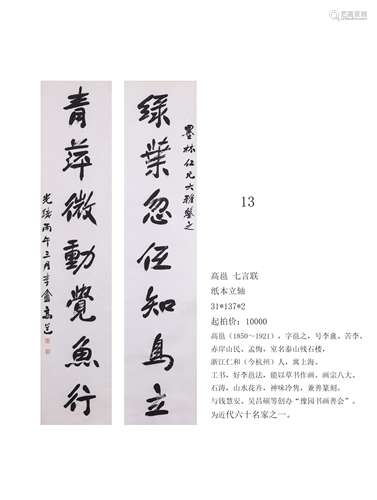 綠葉忽低知鳥立
墨林仁兄大雅鑒之
青萍微動覺魚行
光緒丙午三月李盦高邕
13
高邕 七言联
纸本立轴
31*137*2
起拍价：10000
高邕（1850～1921），字邕之，号李盦、苦李、
赤岸山民、孟悔，室名泰山残石楼，
浙江仁和（今杭州）人，寓上海。
工书，好李邕法，能以草书作画。画宗八大、
石涛，山水花卉，神味冷隽，兼善篆刻。
与钱慧安、吴昌硕等创办“豫园书画善会”。
为近代六十名家之一。